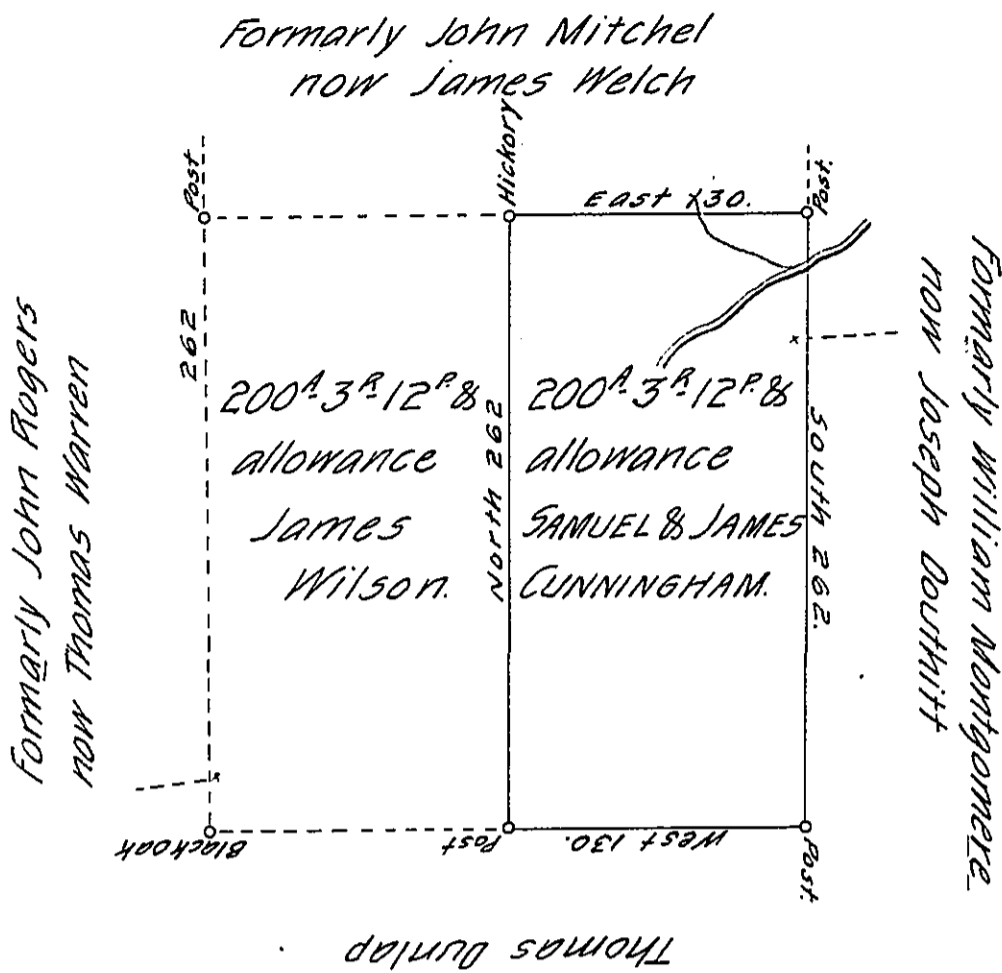 Formarly John Mitchel
now James Welch
Post
Hickory
Post.
East 130.
262
Formarly John Rogers
now Thomas Warren
200A- 3R- 12P. &
allowance
James
Wilson.
North 262
200A- 3R- 12P. &
allowance
SAMUEL & JAMES
CUNNINGHAM.
South 262.
Formarly William Montgomere
now Joseph Douthitt
Blackoak
Post
West 130.
Post.
Thomas Dunlap